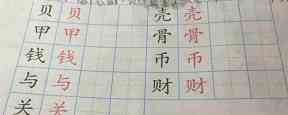 贝 贝 壳 壳
甲 甲 骨 骨
钱 钱 币 币
与 与 财 财
关 关